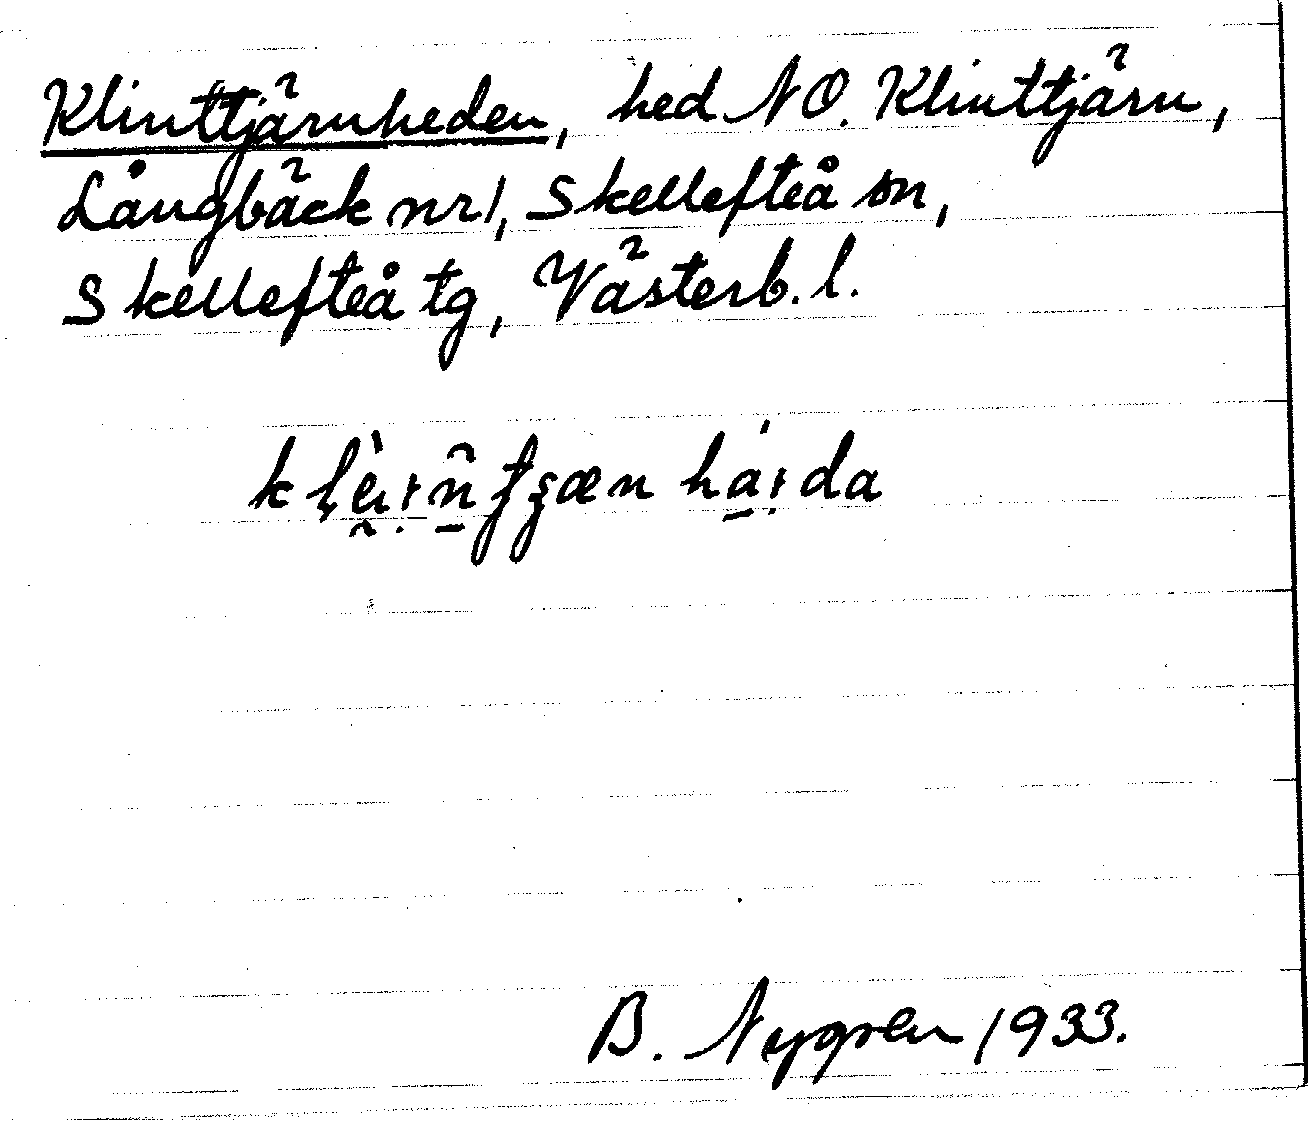 Klinttjärnheden, hed NO. Klinttjärn,
Långbäck nr 1, Skellefteå sn,
Skellefteå tg, Västerb. l.
B. Nygren 1933.